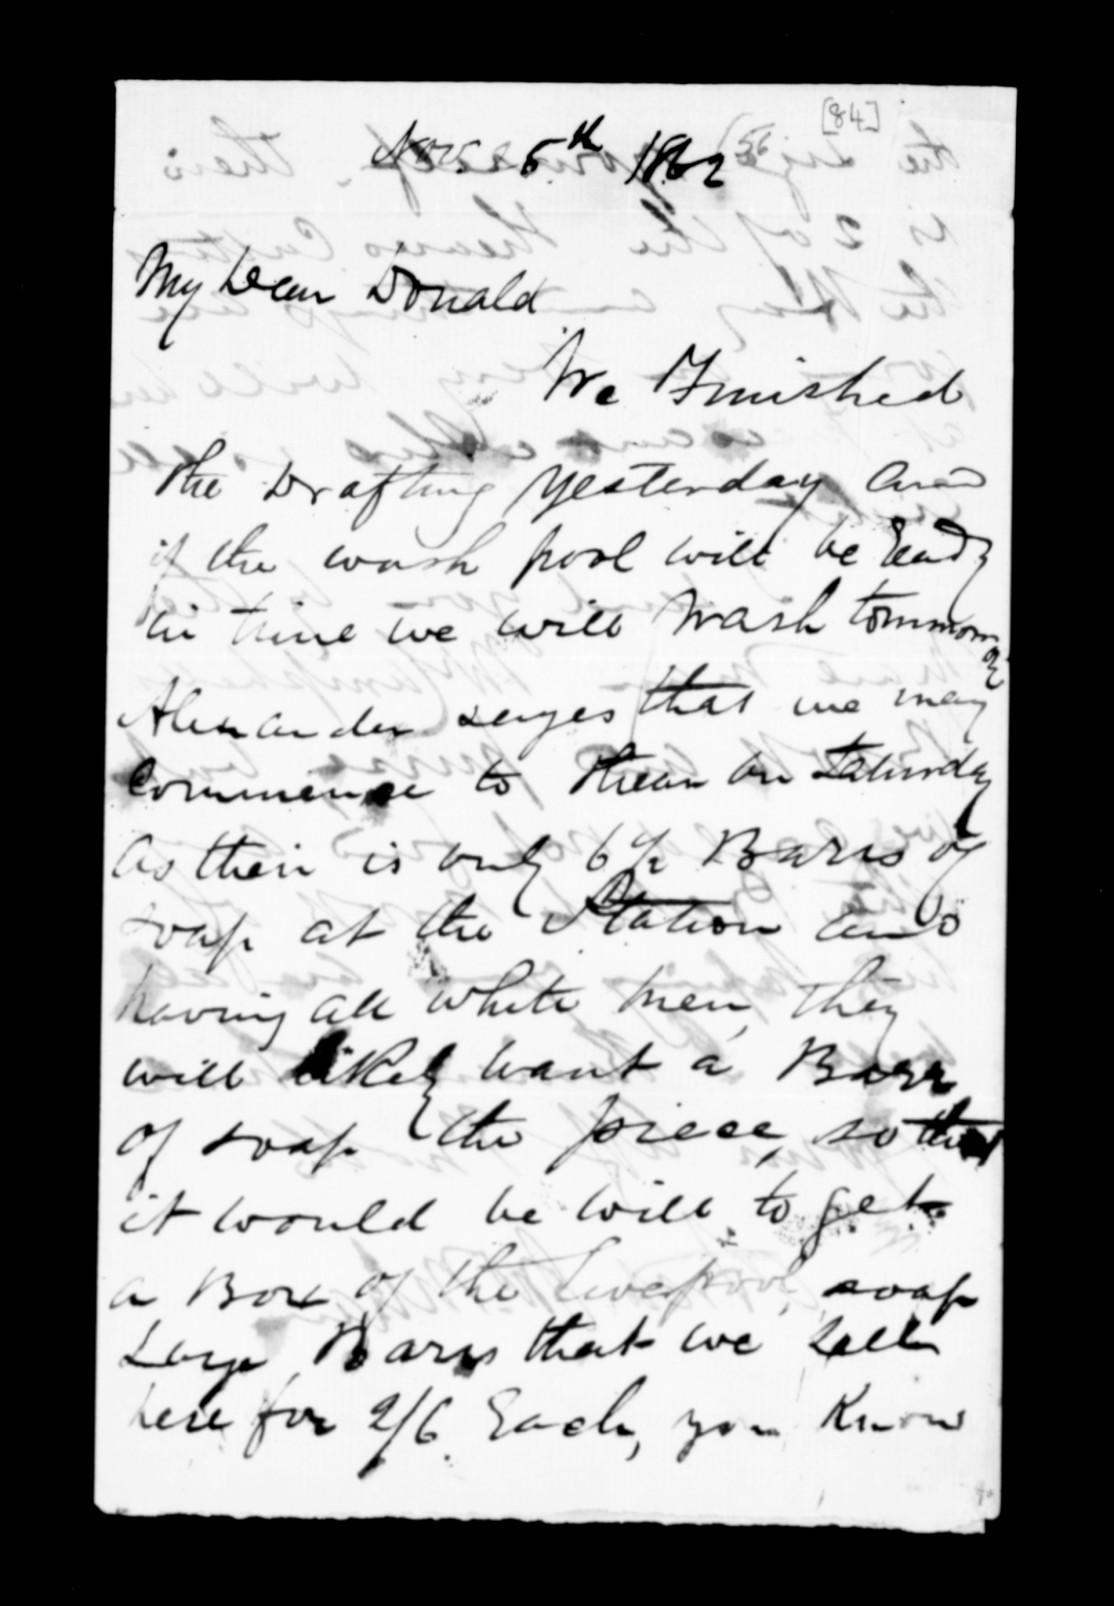 [84]
56
Nov 5th 1862
My Dear Donald
We Finished
the Drafting yesterday and
if the wash pool will be Ready
in time we will Wash tommorow
Alexander seyes that we may
Commence to shear on Saturday
As their is only 6 1/2 Barrs of
soap at the Station and
having all white men, they
will likely want a Barr
of soap the piece, so that
it would be will to get
a Box of the Liverpool, soap
Large Barrs that we sell
here for 2/6 Each, you Know